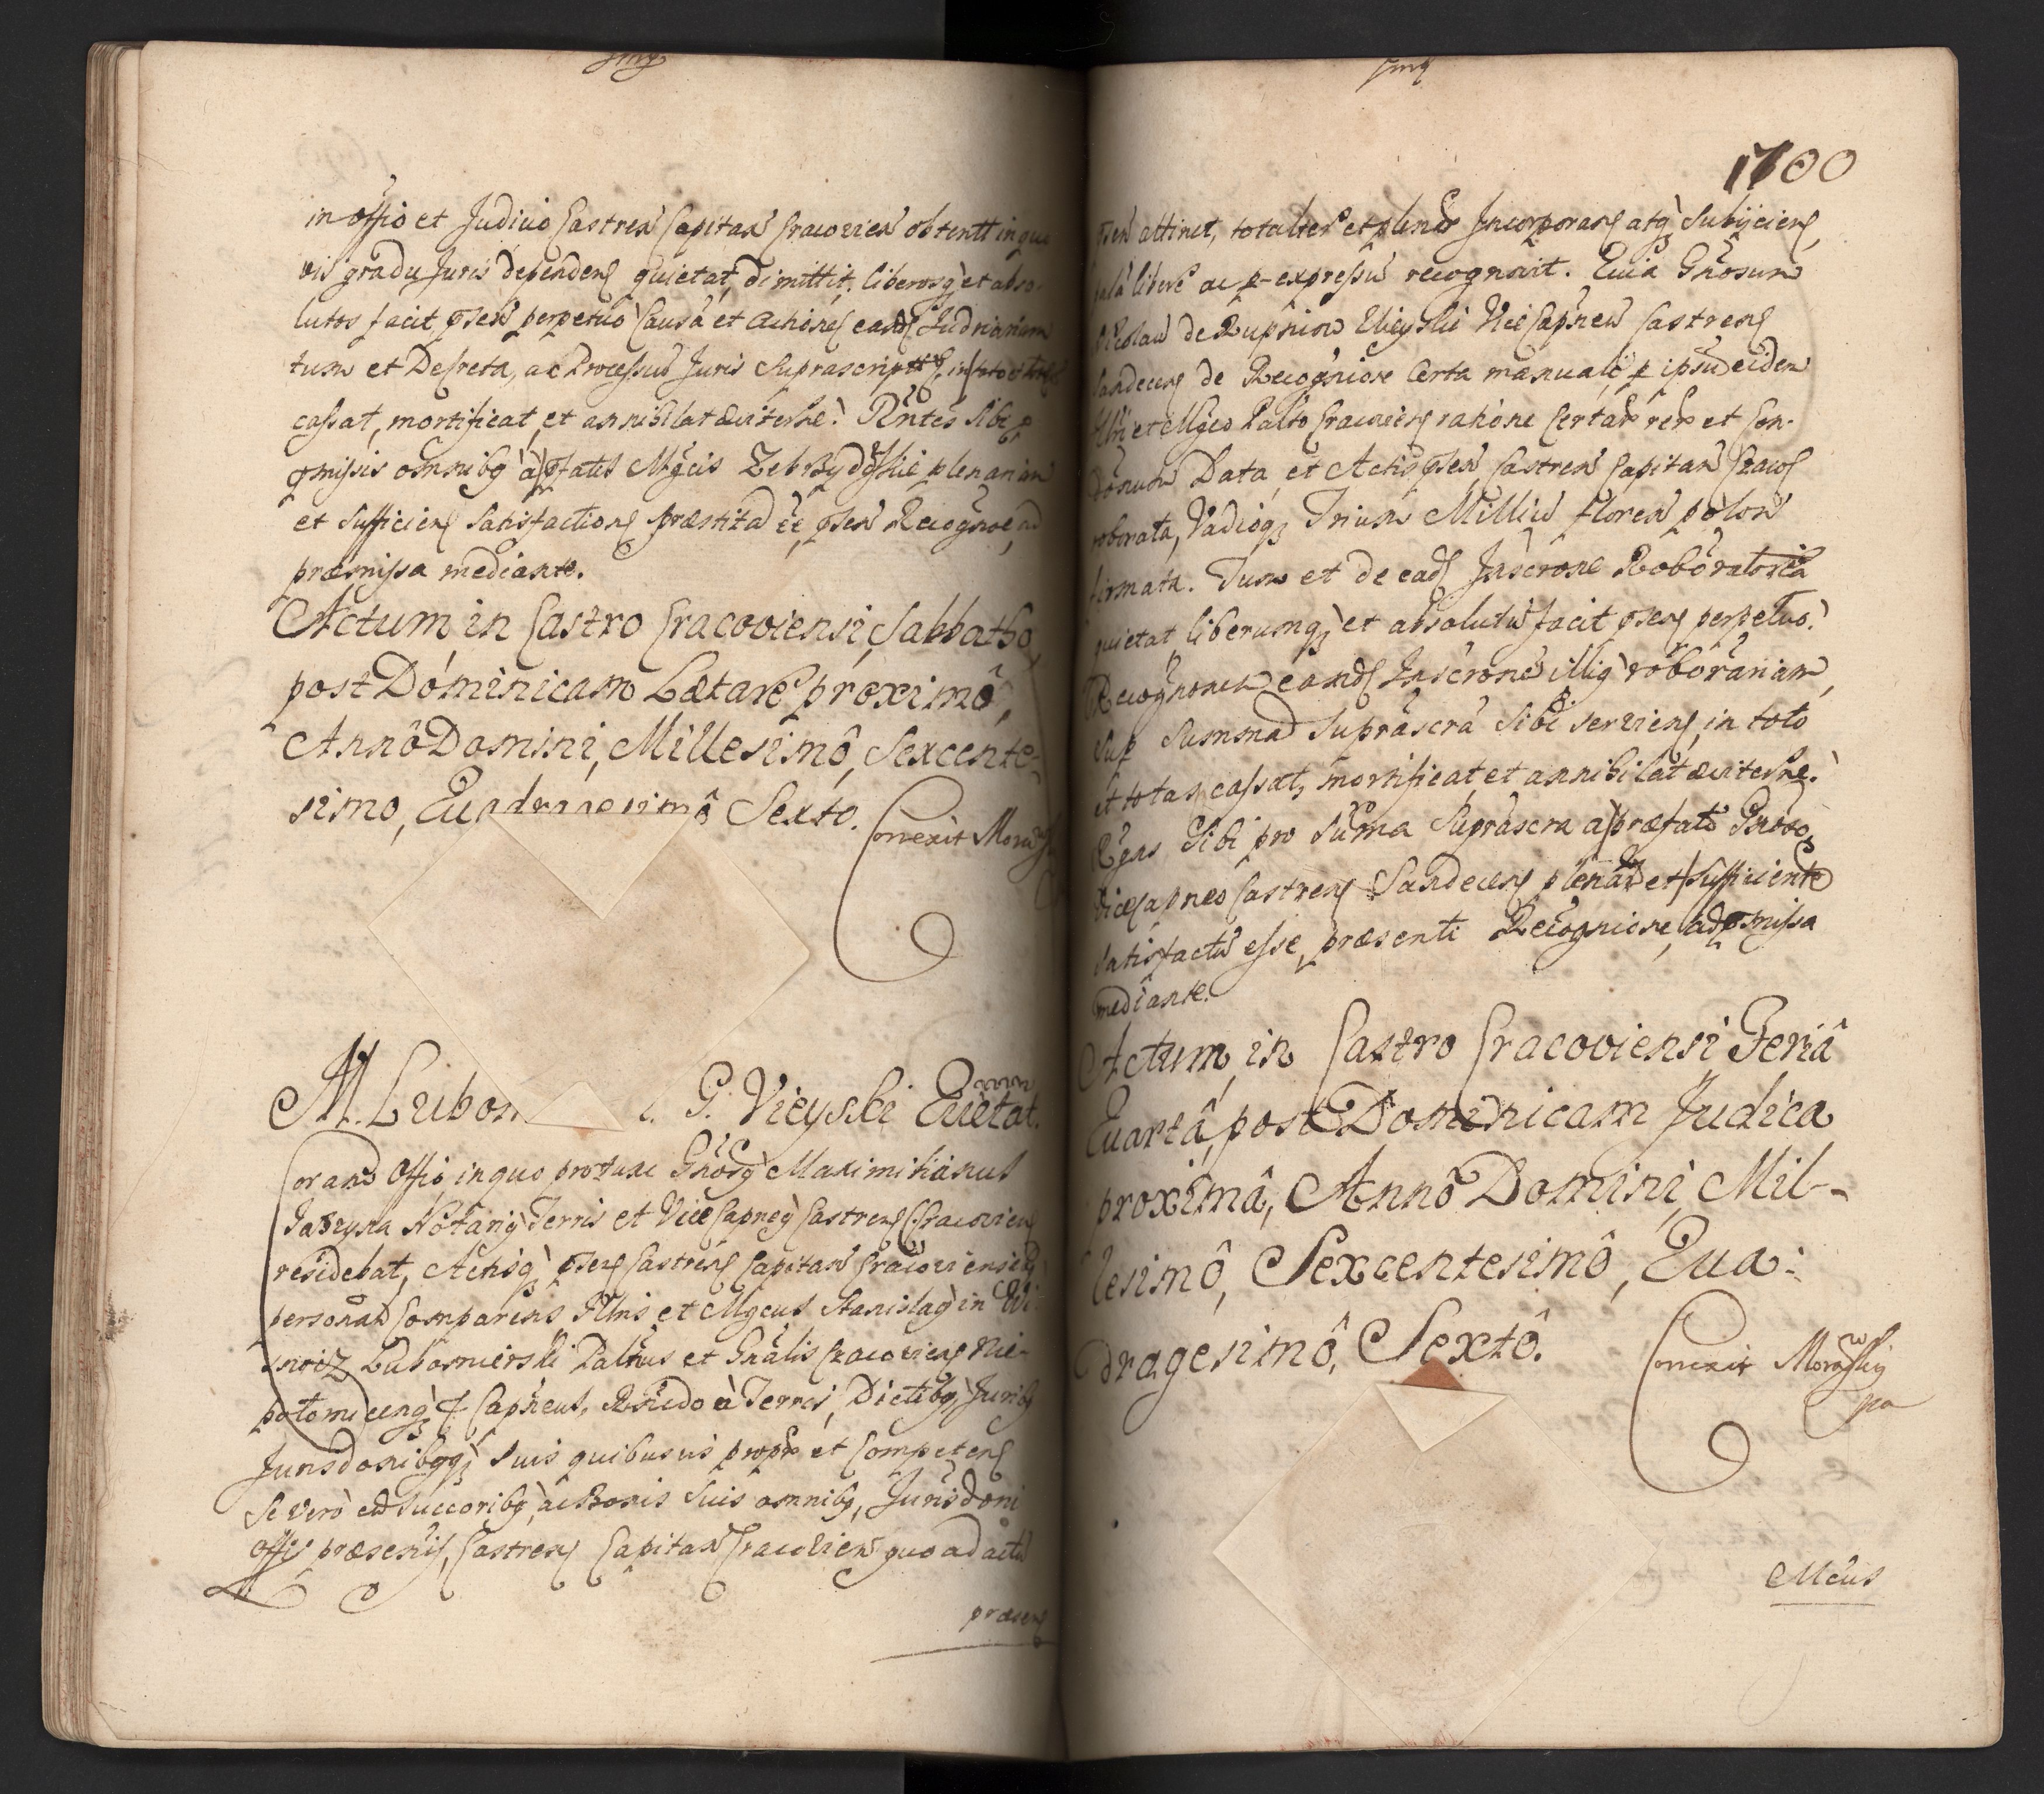 in Offio et Judicio Castren Capitan Cracovien obtentt in quo
vis gradu Juris dependen quietat, dimittit, liberosq et abso-
lutos facit, psen perpetuo Causã et Actiones
tum et Decreta, ac Processus Juris Suprascript in toto
cassat, mortificat, et annihilat æviterne. Rntes sibi p
pmissis omnibq à pfatis Mgcis Zebrzydowskie plenariam
et sufficien satisfaction præstitam ee, psen Recognoe ad
præmissa mediante.
Actum in Castro Cracoviensi, Sabbatho
post Dominicam Lætare proximô,
Annô Domini, Millesimô, Sexcente-
simo, Quadragesimô Sexto.
Correxit
M. Lubom G. Vieyski Quietat.
Coram Offio in quo protunc Gnosq Maximilianus
Jabrzyna Notariq Terris et Vice Capneq Castren Cracovien
residebat, Actisq psen Castren Capitan Cracoviensib
personalr Comparens Illris et Mgcus Stanislaq in Wi-
snicz Lubomierski Paltnus et Gnalis Cracovien Nie-
potomicenq Capneus, Rnædo à Terris, Dictibq, Juribq
Jurisdonibqq suis quibusvis propr et Competen
Se vero cũ Succoribq, ac Bonis Suis omnibq, Jurisdoni
Offy præsentis, Castren Capitan Cracovien quo ad actũ
præsen
1700
psen attinet, totaliter et plener Incorporans atq Subijcien,
palã libere ac p-expressũ recognovit. Quia Gnosum
Nicolaũ de Rupniow Vieyski Vice Capneũ Castren
Sandecen de Recognicione Certa manuali p ipsũ eidem
Illri et Mgco Palto Cracovien ratione Certar rer et Con-
donum Data, et Actis psen Castren Capitan Cracov
roborata, Vadioq Trium Milliũ floren polon
firmata. Tum et de ead Inscrone Roboratoria
quietat, liberumq et absolutũ facit psen perpetuo.
Recognonem eand Inscrone illiq roborariam,
Sup Summã Suprascra Sibi servien, in toto
et totas, cassat, mortificat, et annihilat æviterne.
Sibi pro Suma Suprascra a præfato Gnoso
Vicecapneo Castren Sandecen plenar et sufficiente
satisfactũ esse, præsenti Recognicione, ad pmissa
mediante.
Actum in Castro Cracoviensi Feriâ
Quartâ, post Dominicam Judica
proximâ, Annô Domini, Mil-
lesimô, Sexcentesimô, Qua-
dragesimô, Sextô.
Correxit Morawski
Mcus